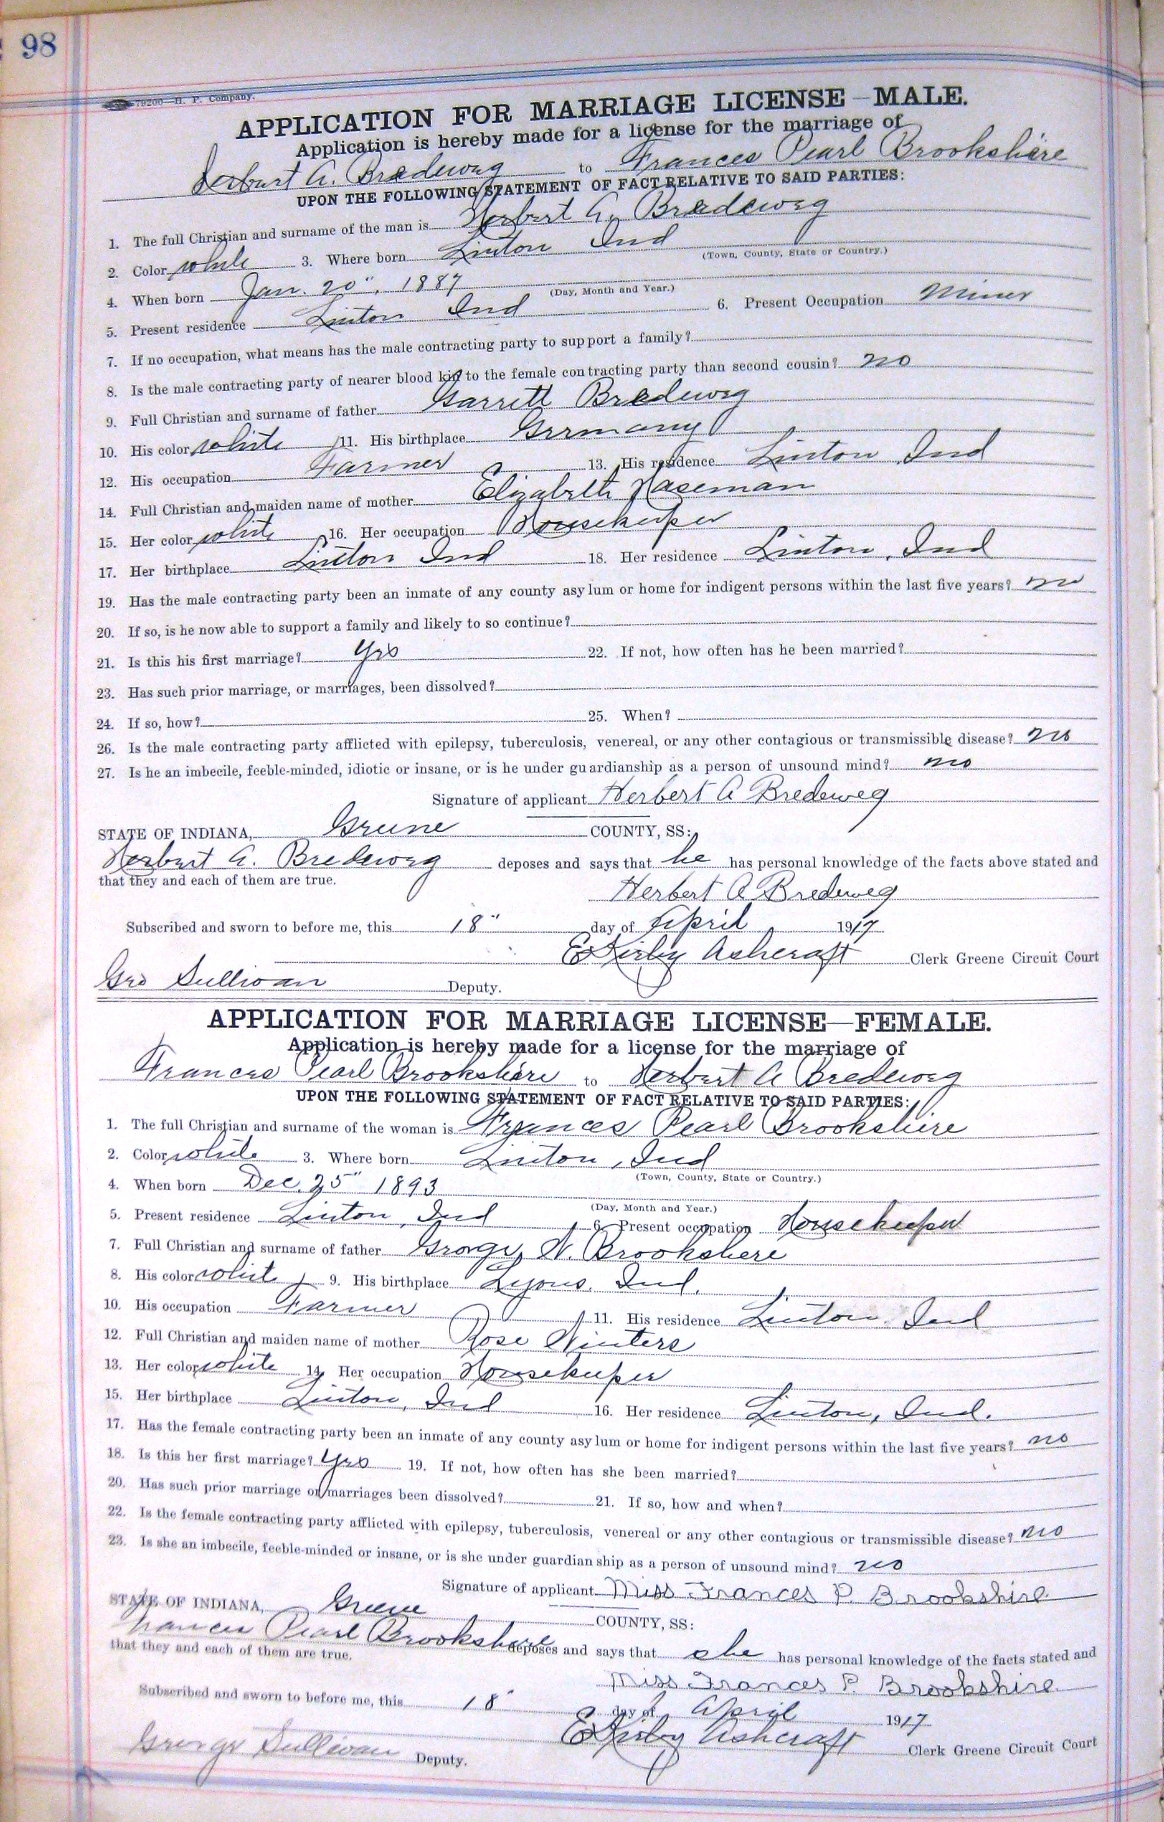 98
79200—H. P. Company.
APPLICATION FOR MARRIAGE LICENSE—MALE.
Application is hereby made for a license for the marriage of
Herbert A. Bredeweg to Frances Pearl Brookshire
UPON THE FOLLOWING STATEMENT OF FACT RELATIVE TO SAID PARTIES:
1. The full Christian and surname of the man is Herbert A. Bredeweg
2. Color white 3. Where born Linton Ind
(Town, County, State or Country.)
4. When born Jan. 20", 1887
(Day, Month and Year.)
5. Present residence Linton Ind 6. Present Occupation Miner
7. If no occupation, what means has the male contracting party to support a family?
8. Is the male contracting party of nearer blood kin to the female contracting party than second cousin? no
9. Full Christian and surname of father Garrett Bredeweg
10. His color white 11. His birthplace Germany
12. His occupation Farmer 13. His residence Linton Ind
14. Full Christian and maiden name of mother Elizabeth Haseman
15. Her color white 16. Her occupation Housekeeper
17. Her birthplace Linton Ind 18. Her residence Linton, Ind
19. Has the male contracting party been an inmate of any county asylum or home for indigent persons within the last five years? no
20. If so, is he now able to support a family and likely to so continue?
21. Is this his first marriage? Yes 22. If not, how often has he been married?
23. Has such prior marriage, or marriages, been dissolved?
24. If so, how? 25. When?
26. Is the male contracting party afflicted with epilepsy, tuberculosis, venereal, or any other contagious or transmissible disease? no
27. Is he an imbecile, feeble-minded, idiotic or insane, or is he under guardianship as a person of unsound mind? no
Signature of applicant Herbert A Bredeweg
STATE OF INDIANA, Greene COUNTY, SS:
Herbert A. Bredeweg deposes and says that he has personal knowledge of the facts above stated and
that they and each of them are true.
Herbert A Bredeweg
Subscribed and sworn to before me, this 18" day of April 1917
E Kirby Ashcraft Clerk Greene Circuit Court
Geo Sullivan Deputy.
APPLICATION FOR MARRIAGE LICENSE—FEMALE.
Application is hereby made for a license for the marriage of
Frances Pearl Brookshire to Herbert A Bredeweg
UPON THE FOLLOWING STATEMENT OF FACT RELATIVE TO SAID PARTIES:
1. The full Christian and surname of the woman is Frances Pearl Brookshire
2. Color white 3. Where born Linton, Ind
(Town, County, State or Country.)
4. When born Dec. 25" 1893
(Day, Month and Year.)
5. Present residence Linton, Ind 6. Present occupation Housekeeper
7. Full Christian and surname of father George N. Brookshire
8. His color white 9. His birthplace Lyons, Ind.
10. His occupation Farmer 11. His residence Linton Ind
12. Full Christian and maiden name of mother Rose Winters
13. Her color white 14. Her occupation Housekeeper
15. Her birthplace Linton, Ind 16. Her residence Linton, Ind.
17. Has the female contracting party been an inmate of any county asylum or home for indigent persons within the last five years? no
18. Is this her first marriage? Yes 19. If not, how often has she been married?
20. Has such prior marriage or marriages been dissolved? 21. If so, how and when?
22. Is the female contracting party afflicted with epilepsy, tuberculosis, venereal or any other contagious or transmissible disease? no
23. Is she an imbecile, feeble-minded or insane, or is she under guardian ship as a person of unsound mind? no
Signature of applicant Miss Frances P. Brookshire
STATE OF INDIANA, Greene COUNTY, SS:
Frances Pearl Brookshire deposes and says that she has personal knowledge of the facts stated and
that they and each of them are true.
Miss Frances P. Brookshire
Subscribed and sworn to before me, this 18" day of April 1917
E Kirby Ashcraft Clerk Greene Circuit Court
George Sullivan Deputy.